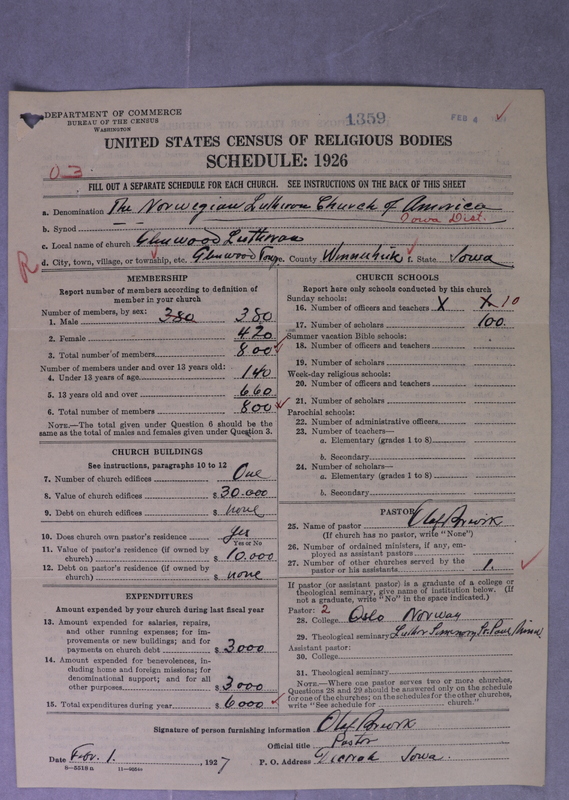 DEPARTMENT OF COMMERCE
BUREAU OF THE CENSUS
WASHINGTON
1359
FEB 4
UNITED STATES CENSUS OF RELIGIOUS BODIES
SCHEDULE: 1926
03
FILL OUT A SEPARATE SCHEDULE FOR EACH CHURCH. SEE INSTRUCTIONS ON THE BACK OF THIS SHEET
a. Denomination The Norwegian Lutheran Church of America
Iowa Dist.
b. Synod
c. Local name of church Glenwood Lutheran
d. City, town, village, or township, etc. Glenwood Twp. e. County Winneshiek f. State Iowa
R
MEMBERSHIP
Report number of members according to definition of
member in your church
Number of members, by sex:
1. Male 380 380
2. Female 420
3. Total number of members 800
Number of members under and over 13 years old:
4. Under 13 years of age 140
5. 13 years old and over 660
6. Total number of members 800
NOTE.—The total given under Question 6 should be
the same as the total of males and females given under Question 3.
CHURCH BUILDINGS
See instructions, paragraphs 10 to 12
7. Number of church edifices One
8. Value of church edifices $30.000
9. Debt on church edifices $ none
10. Does church own pastor's residence yes
Yes or No
11. Value of pastor's residence (if owned by
church) $ 10.000
12. Debt on pastor's residence (if owned by
church) $ none
EXPENDITURES
Amount expended by your church during last fiscal year
13. Amount expended for salaries, repairs,
and other running expenses; for im-
provements or new buildings; and for
payments on church debt $ 3000
14. Amount expended for benevolences, in-
cluding home and foreign missions; for
denominational support; and for all
other purposes $ 3000
15. Total expenditures during year $ 6000
CHURCH SCHOOLS
Report here only schools conducted by this church
Sunday schools:
16. Number of officers and teachers X X 10
17. Number of scholars 100.
Summer vacation Bible schools:
18. Number of officers and teachers
19. Number of scholars
Week-day religious schools:
20. Number of officers and teachers
21. Number of scholars
Parochial schools:
22. Number of administrative officers
23. Number of teachers—
a. Elementary (grades 1 to 8)
b. Secondary
24. Number of scholars—
a. Elementary (grades 1 to 8)
b. Secondary
PASTOR
25. Name of pastor Olaf
(If church has no pastor, write "None")
26. Number of ordained ministers, if any, em-
ployed as assistant pastors
27. Number of other churches served by the
pastor or his assistants 1.
If pastor (or assistant pastor) is a graduate of a college or
theological seminary, give name of institution below. (If
not a graduate, write "No" in the space indicated.)
Pastor: 2
28. College Oslo Norway
29. Theological seminary Luther Seminary St. Paul Minn
Assistant pastor:
30. College
31. Theological seminary
NOTE.—Where one pastor serves two or more churches,
Questions 28 and 29 should be answered only on the schedule
for one of the churches; on the schedules for the other churches,
write "See schedule for church."
Signature of person furnishing information Olaf
Official title Pastor
Date Febr. 1. , 1927 P. O. Address Decorah Iowa.
8—5518 a